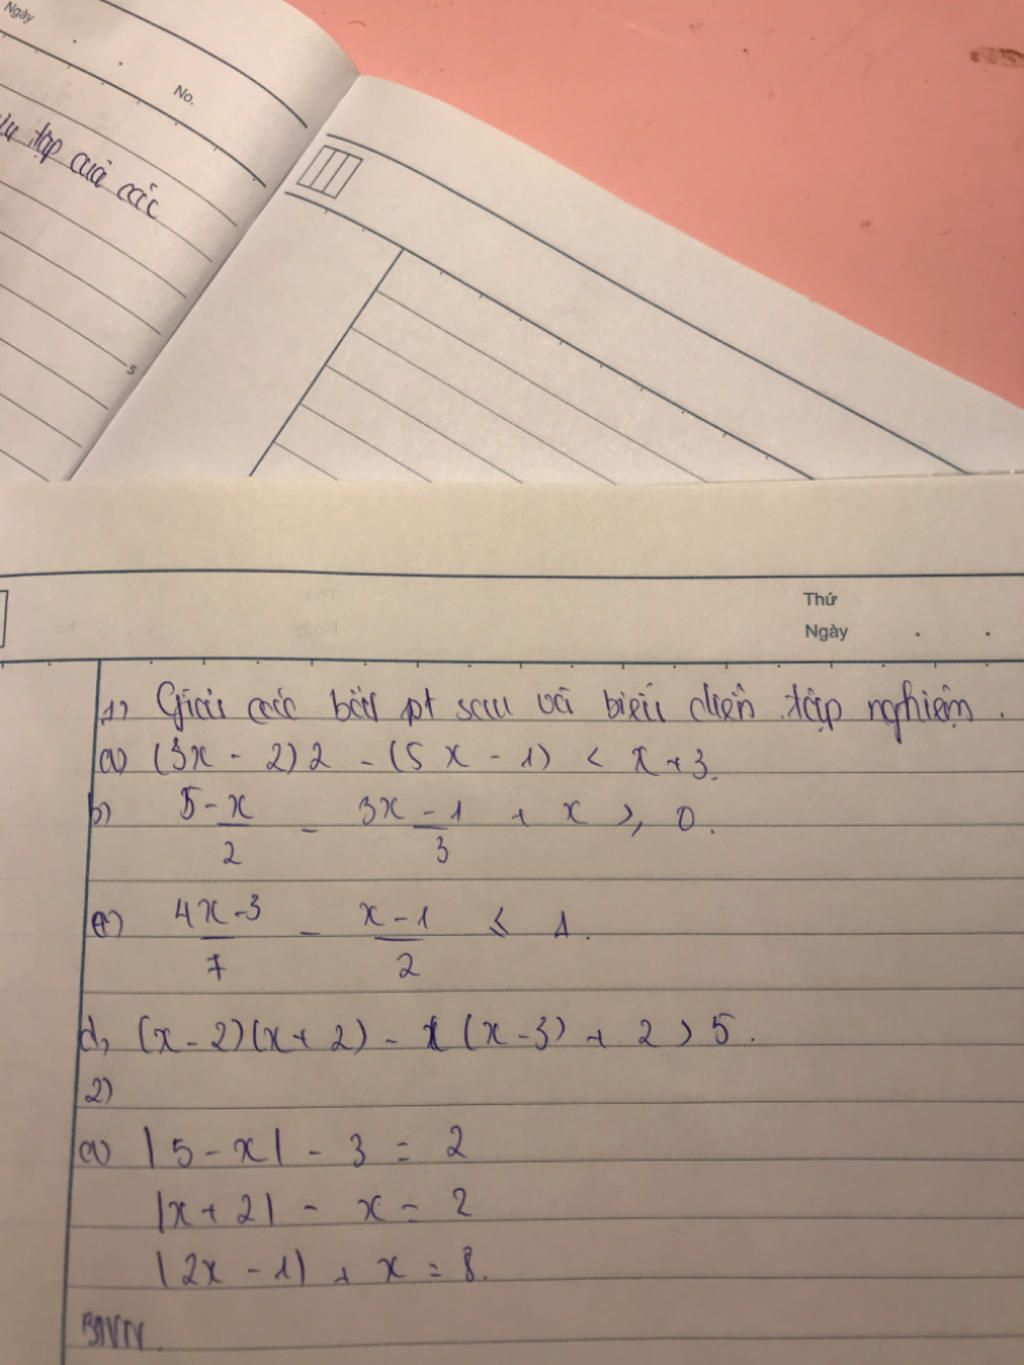 Ngày
No.
tập của các
5
Thứ
Ngày
1) Giải các bất pt sau và biểu diễn tập nghiệm.
a) (3x - 2)2 - (5x - 1) < x + 3.
b) (5-x)/2 - (3x-1)/3 + x ≥ 0.
c) (4x-3)/7 - (x-1)/2 ≤ 1.
d, (x-2)(x+2) - x(x-3) + 2 > 5.
2)
a) |5-x| - 3 = 2
|x+2| - x = 2
|2x-1| + x = 8.
BTVN.